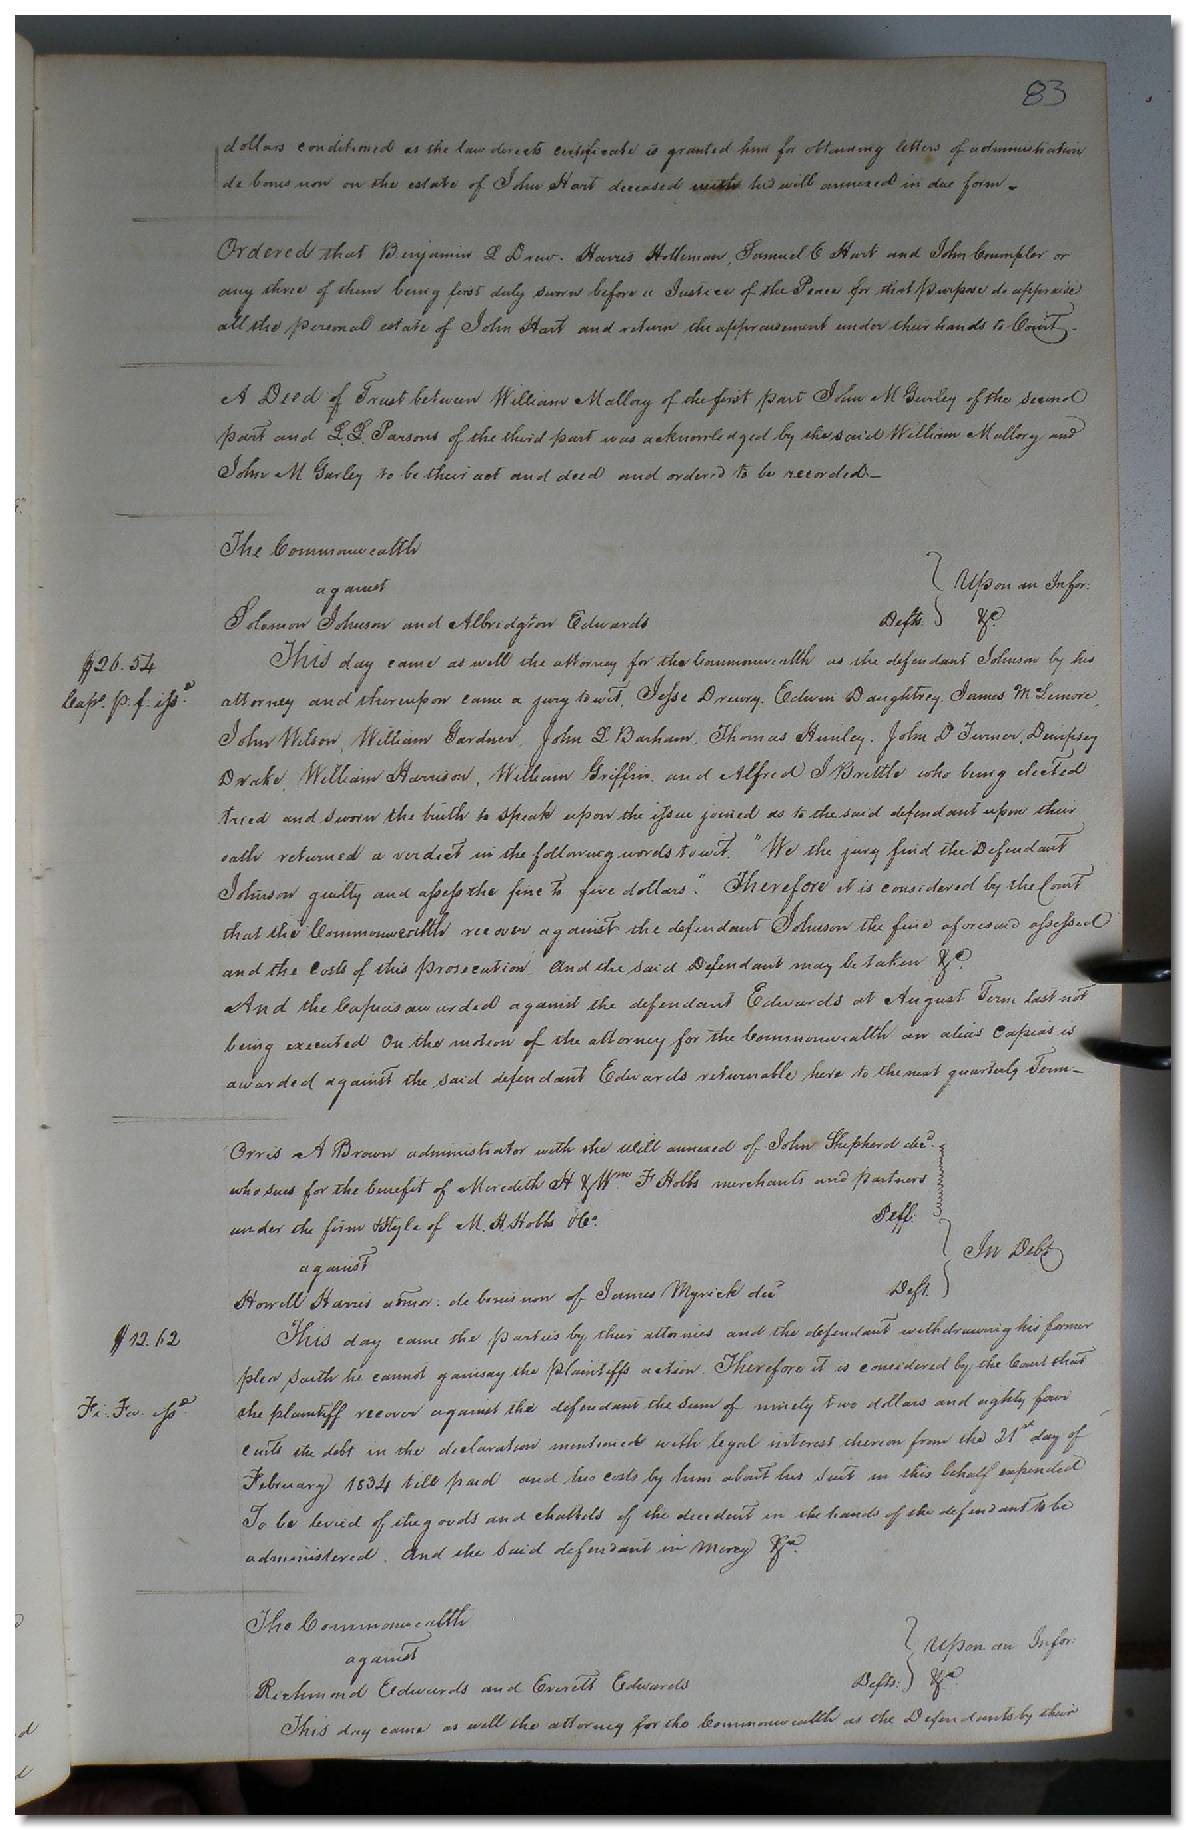 83
dollars conditioned as the law directs certificate is granted him for obtaining letters of administration
de bonis non on the estate of John Hart deceased with his will annexed in due form -
Ordered that Benjamin L Drew. Harris Holleman, Samuel C Hart and John Crumpler or
any three of them being first duly sworn before a Justice of the Peace for that purpose do appraise
all the personal estate of John Hart and return the appraisement under their hands to Court -
A Deed of Trust between William Mallory of the first part John M Gurley of the second
part and L. L. Parsons of the third part was acknowledged by the said William Mallory and
John M Gurley to be their act and deed and ordered to be recorded -
The Commonwealth
against
Upon an Infor:
Solomon Johnson and Albridgton Edwards Defts. &c
$26.54
This day came as well the attorney for the Commonwealth as the defendant Johnson by his
Caps. p. f. issd.
attorney and thereupon came a jury to wit, Jesse Drewry. Edwin Daughtrey James McLemore,
John Wilson, William Gardner, John L Barham, Thomas Hunley. John D Turner, Dempsey
Drake, William Harrison, William Griffin and Alfred J Brittle who being elected
tried and sworn the truth to speak upon the issue joined as to the said defendant upon their
oath returned a verdict in the following words to wit. "We the jury find the Defendant
Johnson guilty and assess the fine to five dollars." Therefore it is considered by the Court
that the Commonwealth recover against the defendant Johnson the fine aforesaid assessed
and the costs of this prosecution. And the said Defendant may be taken &c.
And the Capias awarded against the defendant Edwards at August Term last not
being executed On the motion of the attorney for the Commonwealth an alias Capias is
awarded against the said defendant Edwards returnable here to the next quarterly Term -
Orris A Brown administrator with the Will annexed of John Shepherd decd.
who sues for the benefit of Meredith H & Wm F Hobbs merchants and partners
under the firm & Style of M. H. Hobbs & Co. Peff.
against
In Debt
Howell Harris admor: de bonis non of James Myrick decd Deft.
$12.62
This day came the parties by their attornies and the defendant withdrawing his former
plea saith he cannot gainsay the plaintiffs action. Therefore it is considered by the Court that
Fi. Fa. issd.
the plaintiff recover against the defendant the sum of ninety two dollars and eighty four
cents the debt in the declaration mentioned with legal interest thereon from the 21st day of
February 1834 till paid and his costs by him about his suit in this behalf expended
To be levied of the goods and chattels of the decedent in the hands of the defendant to be
administered. And the said defendant in Mercy &c.
The Commonwealth
against
Upon an Infor:
Richmond Edwards and Everett Edwards Defts: &c.
This day came as well the attorney for the Commonwealth as the Defendants by their